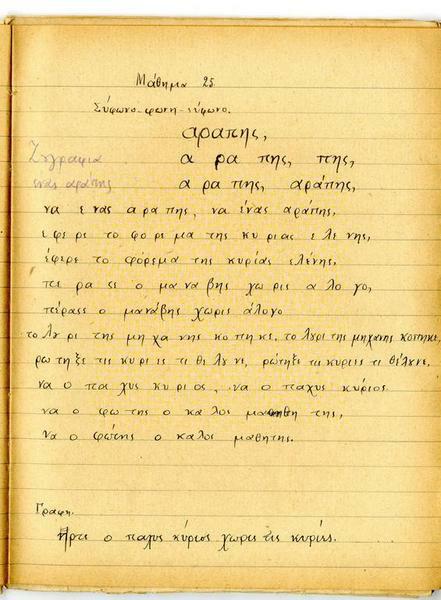 Μάθημα 25
Σύφωνο-φωνη-σύφωνο.
αραπης,
Ζγραφια α ρα πης, πης,
ενας αράπης α ρα πης, αράπης,
να ε νας α ρα πης, να ένας αράπης,
ε φε ρε το φο ρε μα της κυ ρι ας ε λε νης,
έφερε το φόρεμα της κυρίας ελένης,
πε ρα σε ο μα να βης χω ρις α λο γο,
πέρασε ο μανάβης χωρίς άλογο
το λυ ρι της μη χα νης κο πη κε, το λυρι της μηχανης κοπηκε,
ρω τη ξε τις κυ ρι ες τι θε λυ νε, ρώτηξε τις κυριες τι θέλυνε.
να ο πα χυς κυ ρι ος, να ο παχυς κύριος
να ο φω της ο κα λος μα θη της,
να ο φώτης ο καλος μαθητης.
Γραφη.
Ηρτε ο παχυς κύριος χωρις τις κυρίες.